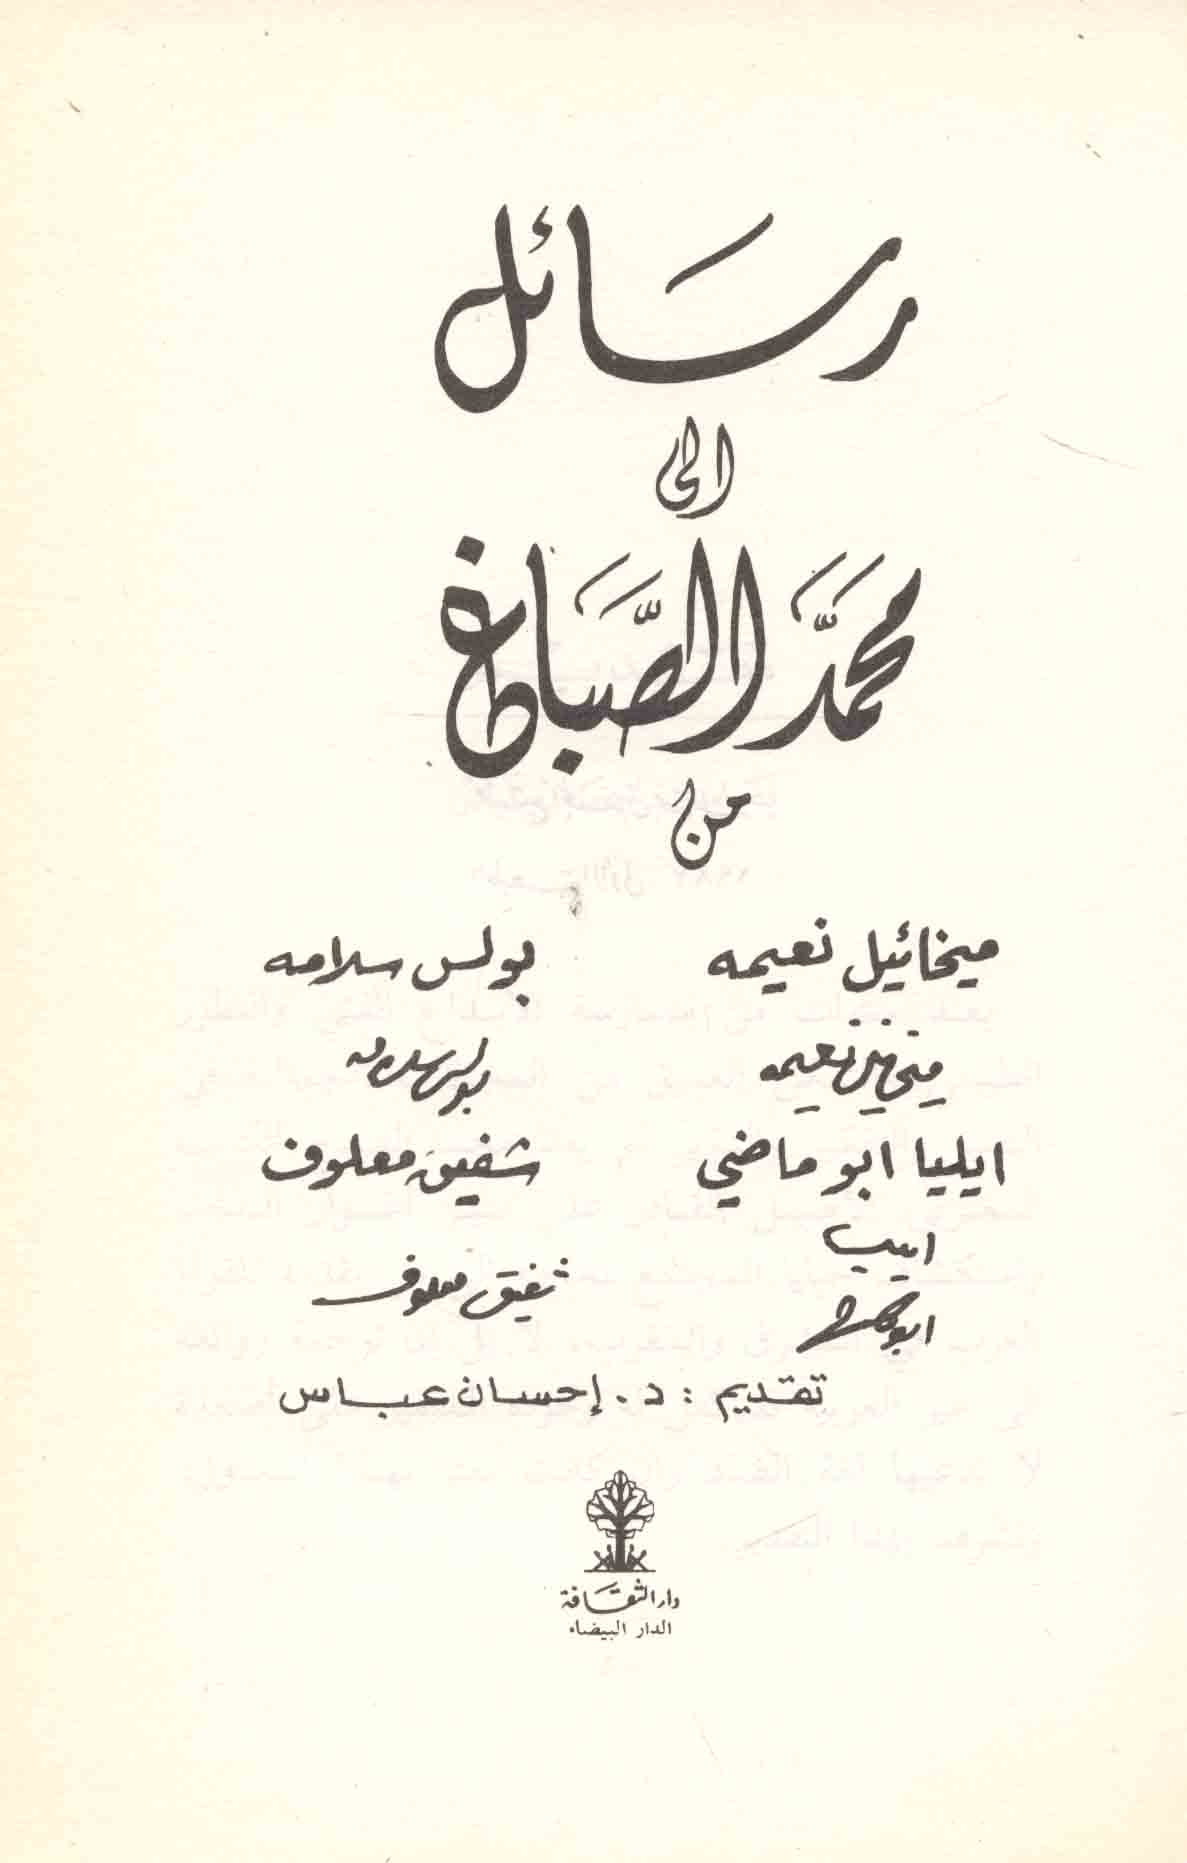 رسائل
الى
محمَّد الصَّباغ
من
ميخائيل نعيمه
بولس سلامه
ميخائيل نعيمه
بولس سلامه
ايليا ابو ماضي
شفيق معلوف
ايليا
شفيق معلوف
ابو ماضي
تقديم : د. إحسان عباس
دار الثقافة
الدار البيضاء